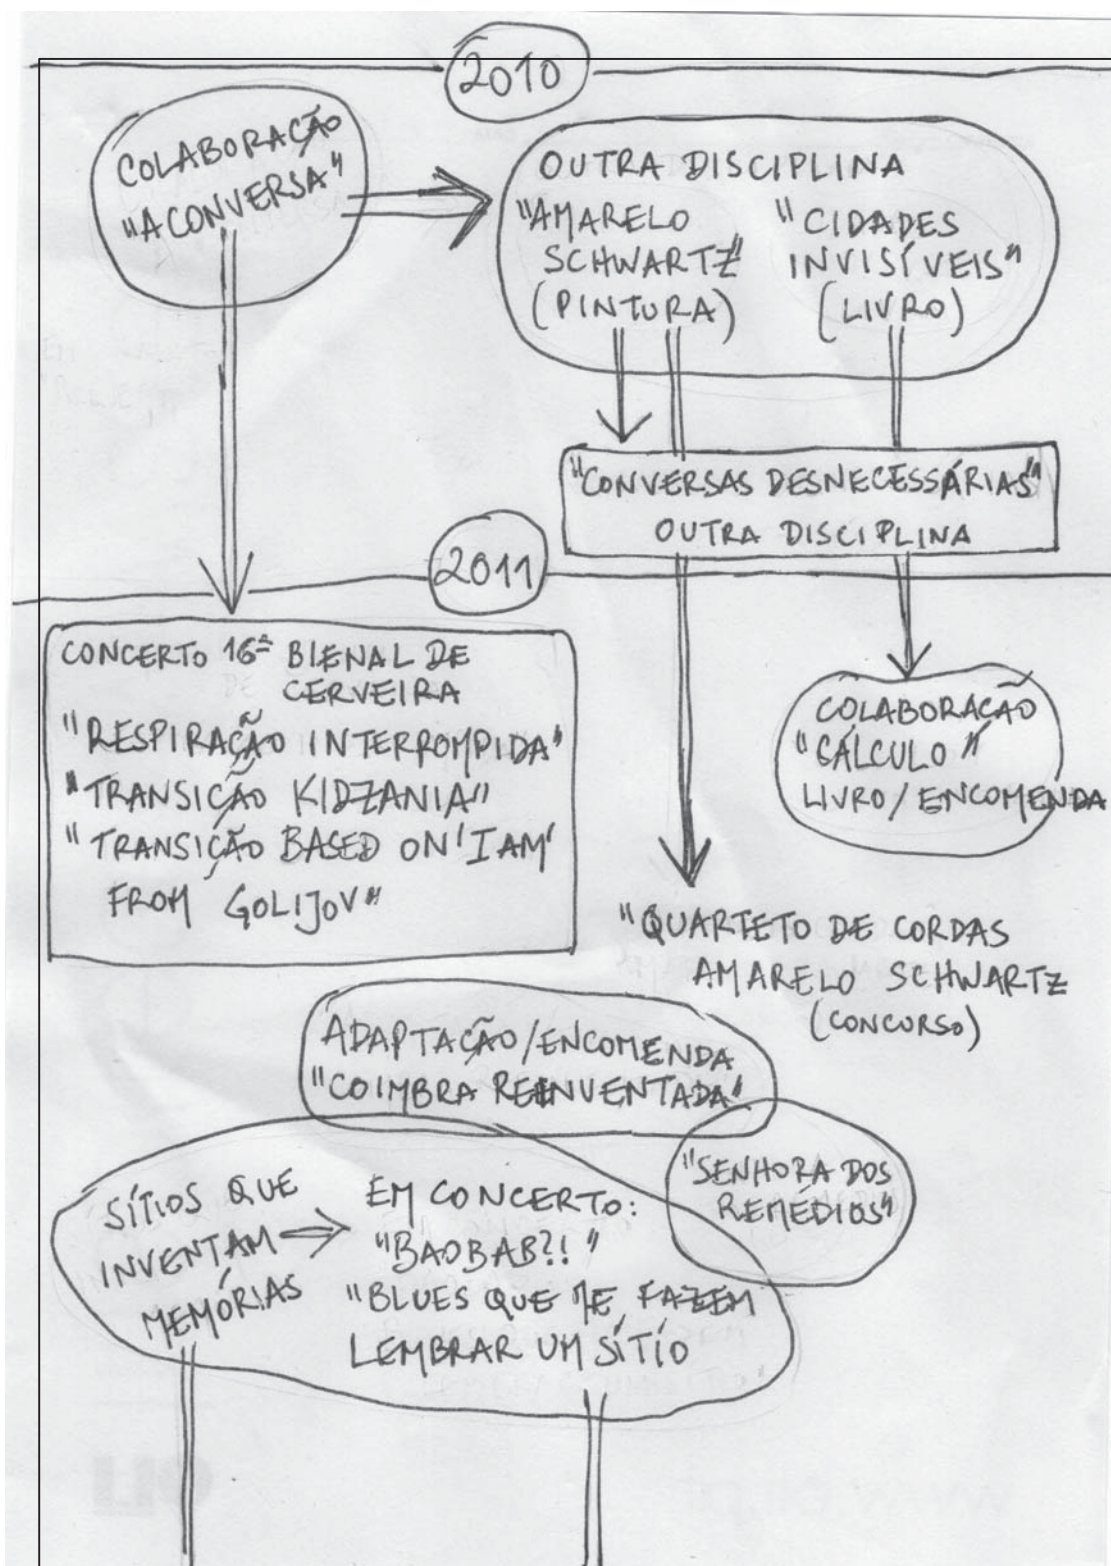 2010
COLABORAÇÃO
"A CONVERSA"
OUTRA DISCIPLINA
"AMARELO
SCHWARTZ"
(PINTURA)
"CIDADES
INVISÍVEIS"
(LIVRO)
"CONVERSAS DESNECESSÁRIAS"
OUTRA DISCIPLINA
2011
CONCERTO 16ª BIENAL DE
CERVEIRA
"RESPIRAÇÃO INTERROMPIDA"
"TRANSIÇÃO KIDZANIA"
"TRANSIÇÃO BASED ON 'I AM'
FROM GOLIJOV"
COLABORAÇÃO
"CÁLCULO"
LIVRO/ENCOMENDA
"QUARTETO DE CORDAS
AMARELO SCHWARTZ
(CONCURSO)
ADAPTAÇÃO/ENCOMENDA
"COIMBRA REINVENTADA"
"SENHORA DOS
REMÉDIOS"
SÍTIOS QUE
INVENTAM
MEMÓRIAS
EM CONCERTO:
"BAOBAB?!"
"BLUES QUE ME FAZEM
LEMBRAR UM SÍTIO